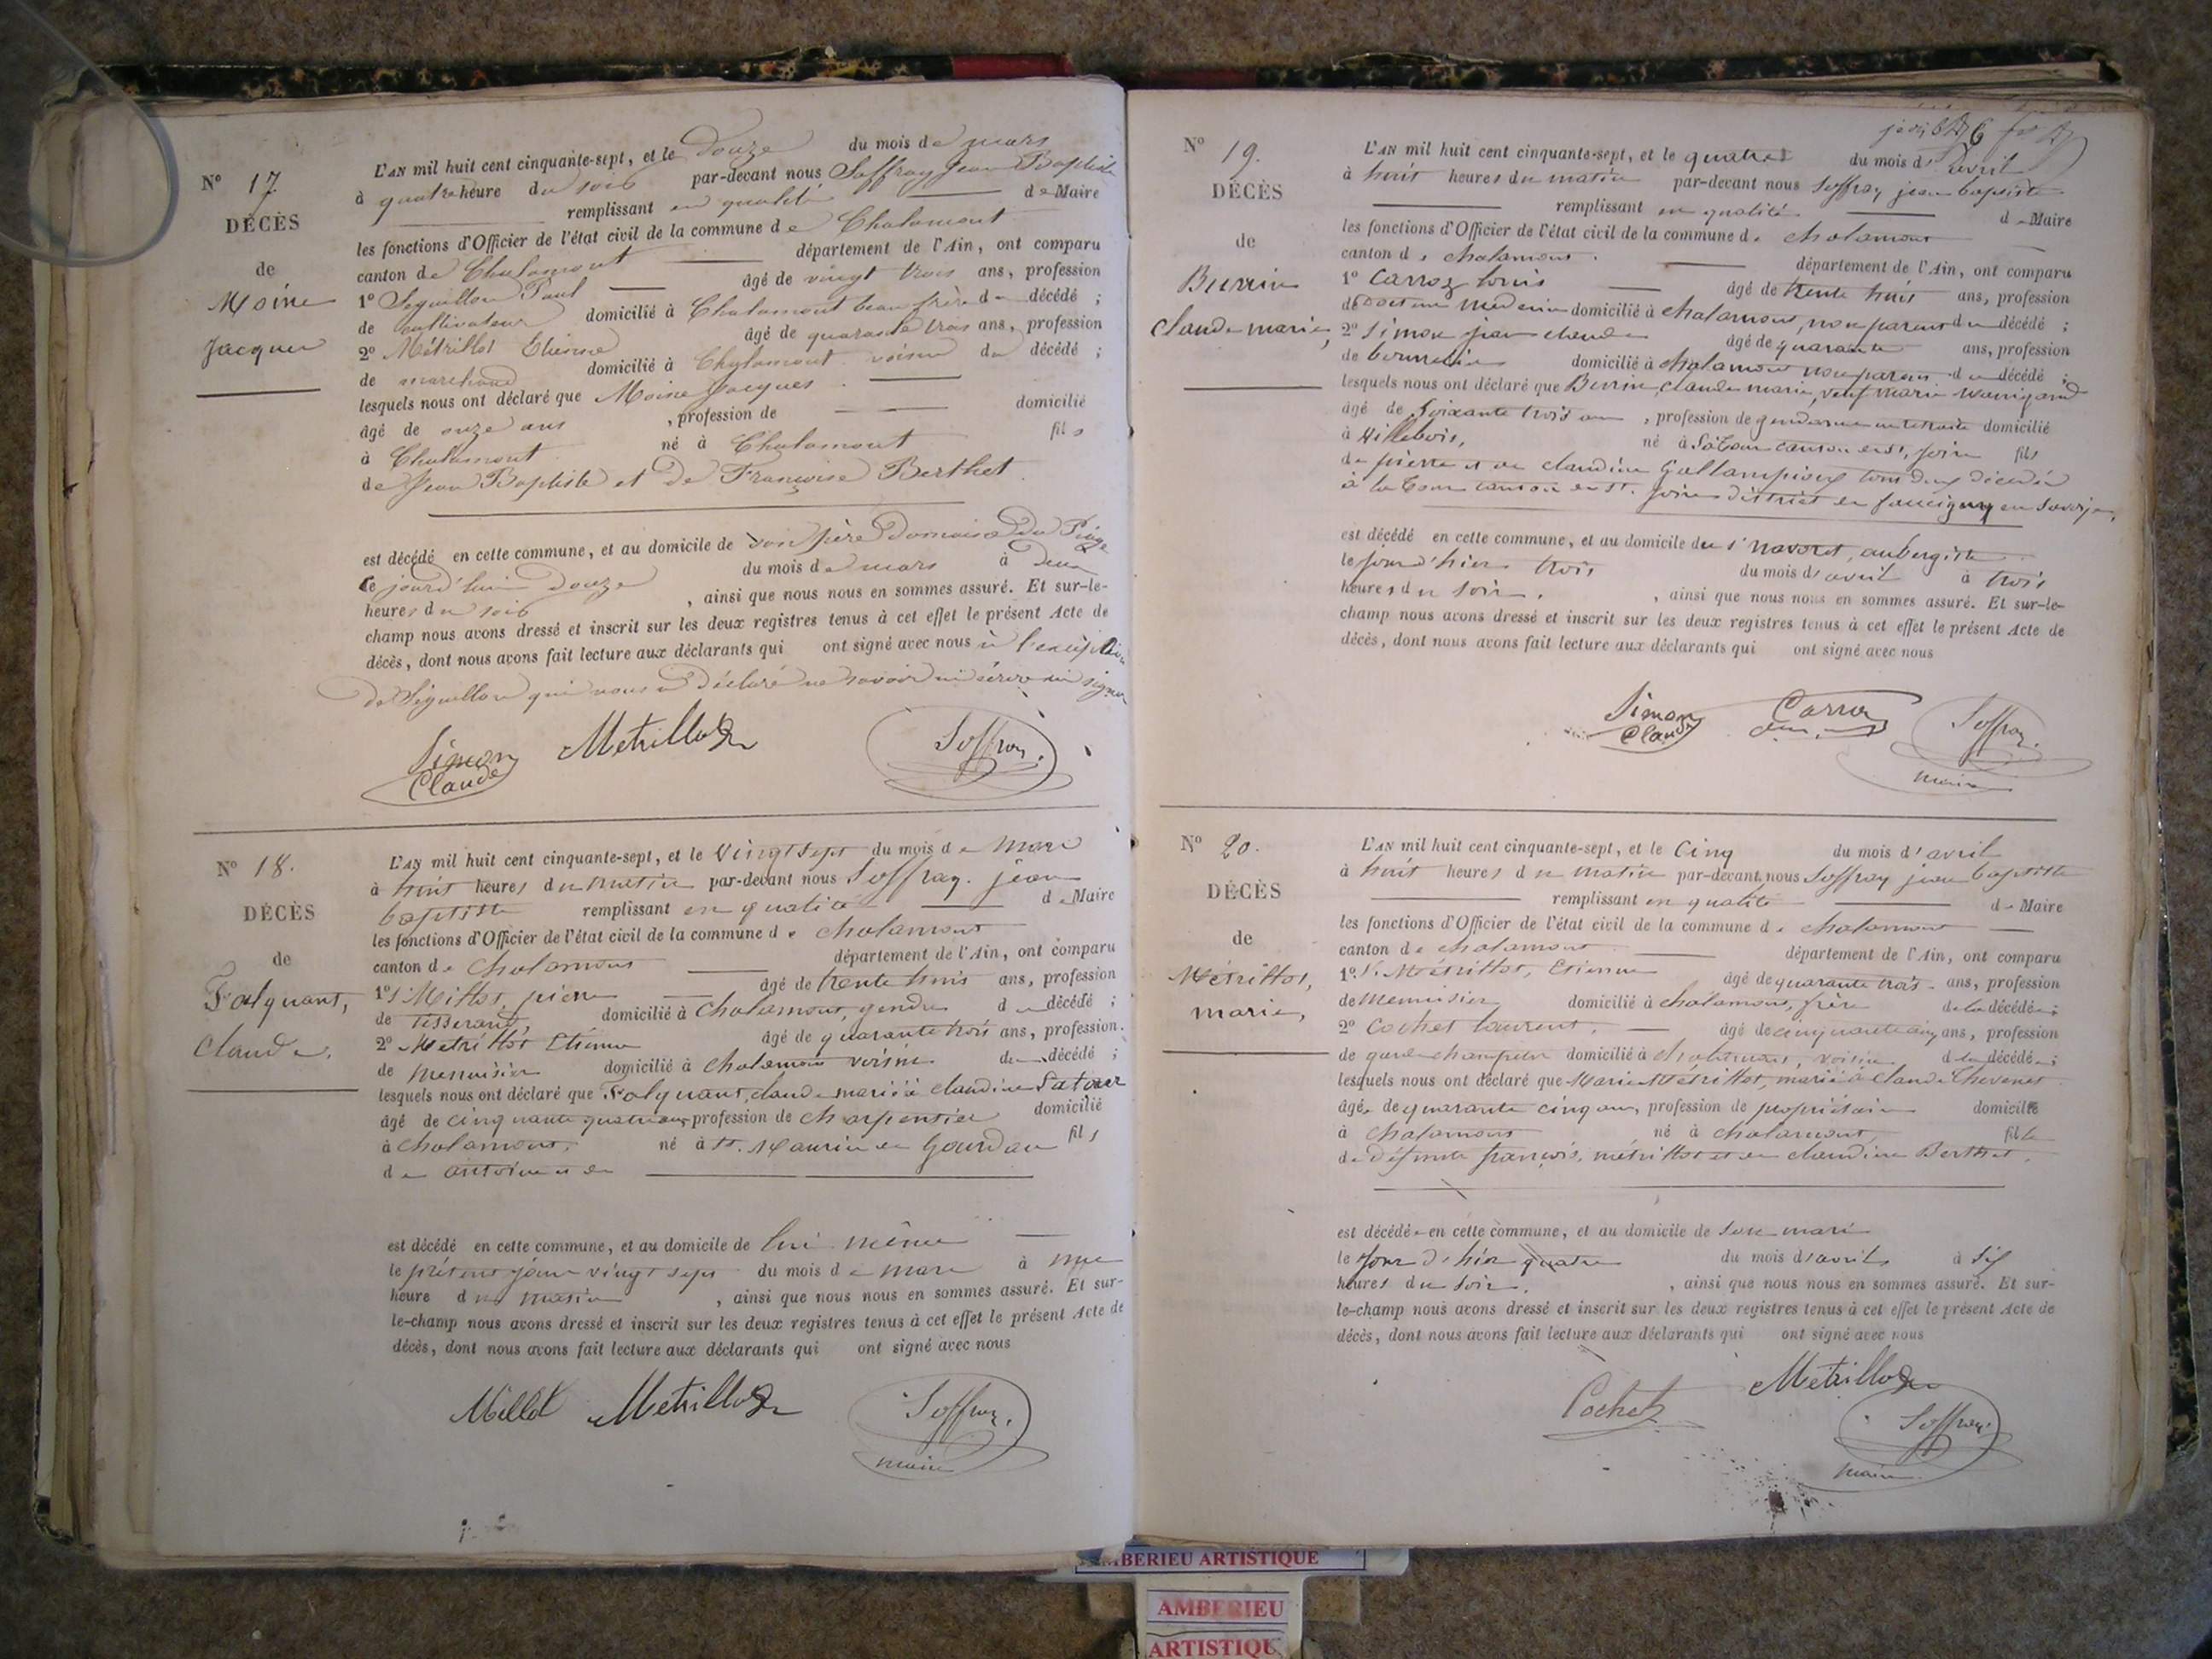 N° 17
DÉCÈS
de
Moine
Jacques
L'AN mil huit cent cinquante-sept, et le Douze du mois de mars
à quatre heure du soir par-devant nous Soffray Jean Baptiste
remplissant en qualité de Maire
les fonctions d'Officier de l'état civil de la commune de Chalamont
canton de Chalamont département de l'Ain, ont comparu
1° Seguillon Paul âgé de vingt trois ans, profession
de cultivateur domicilié à Chalamont beau frère du décédé ;
2° Métrillot Etienne âgé de quarante trois ans, profession
de marchand domicilié à Chalamont voisin du décédé ;
lesquels nous ont déclaré que Moine Jacques
âgé de onze ans , profession de domicilié
à Chalamont né à Chalamont fils
de Jean Baptiste et De Françoise Berthet
est décédé en cette commune, et au domicile de son père Domaine Du
le jourd'hui Douze du mois de mars à Deux
heures du soir , ainsi que nous nous en sommes assuré. Et sur-le-
champ nous avons dressé et inscrit sur les deux registres tenus à cet effet le présent Acte de
décès, dont nous avons fait lecture aux déclarants qui ont signé avec nous à l'exception
de Séguillon qui nous a Déclaré ne savoir ni écrire ni signer
Simon Claude Metrillot Soffray
N° 18.
DÉCÈS
de
Falquant,
Claude.
L'AN mil huit cent cinquante-sept, et le Vingt sept du mois de Mars
à huit heures du matin par-devant nous Soffray jean
baptiste remplissant en qualité de Maire
les fonctions d'Officier de l'état civil de la commune de chalamont
canton de chalamont département de l'Ain, ont comparu
1° S. Millot, pierre âgé de trente huit ans, profession
de Tisserand, domicilié à Chalamont, gendre du décédé ;
2° Metrillot Etienne âgé de quarante trois ans, profession.
de menuisier domicilié à chalamont voisin du décédé ;
lesquels nous ont déclaré que Falquant, claude marié à claudine
âgé de cinquante quatre ans profession de charpentier domicilié
à chalamont, né à St. Maurice de Gourdan fils
de antoine et de
est décédé en cette commune, et au domicile de lui même
le présent jour vingt sept du mois de mars à une
heure du matin , ainsi que nous nous en sommes assuré. Et sur-
le-champ nous avons dressé et inscrit sur les deux registres tenus à cet effet le présent Acte de
décès, dont nous avons fait lecture aux déclarants qui ont signé avec nous
Millot Metrillot Soffray
maire
N° 19.
DÉCÈS
de
Burrin
Claude marie,
L'AN mil huit cent cinquante-sept, et le quatre du mois d'avril
à huit heures du matin par-devant nous Soffray jean baptiste
remplissant en qualité de Maire
les fonctions d'Officier de l'état civil de la commune de chalamont
canton de chalamont. département de l'Ain, ont comparu
1° Carroz louis âgé de trente huit ans, profession
de Docteur Médecin domicilié à chalamont, non parent du décédé ;
2° Simon jean claude âgé de quarante ans, profession
de domicilié à chalamont non parent du décédé ;
lesquels nous ont déclaré que Burrin, claude marie, veuf marie
âgé de soixante trois ans , profession de gendarme en retraite domicilié
à Villebois, né à fils
de pierre et de claudine tous deux décédés
à la Tour canton de St. district de faucigny en Savoie,
est décédé en cette commune, et au domicile du s' Navoret, aubergiste
le jour d'hier trois du mois d'avril à trois
heures du soir, , ainsi que nous nous en sommes assuré. Et sur-le-
champ nous avons dressé et inscrit sur les deux registres tenus à cet effet le présent Acte de
décès, dont nous avons fait lecture aux déclarants qui ont signé avec nous
Simon Claude Carroz Soffray
maire
N° 20.
DÉCÈS
de
Métrillot,
marie,
L'AN mil huit cent cinquante-sept, et le Cinq du mois d'avril
à huit heures du matin par-devant nous Soffray jean baptiste
remplissant en qualité de Maire
les fonctions d'Officier de l'état civil de la commune de chalamont
canton de chalamont département de l'Ain, ont comparu
1° S. Métrillot, Etienne âgé de quarante trois ans, profession
de Menuisier domicilié à chalamont, frère de la décédée ;
2° Cochet laurent, âgé de cinquante cinq ans, profession
de garde champêtre domicilié à chalamont, voisin de la décédée ;
lesquels nous ont déclaré que Marie Métrillot, mariée à claude Thevenet
âgée de quarante cinq ans, profession de propriétaire domicilée
à chalamont né à chalamont, fille
de Défunt françois métrillot et de claudine Berthet.
est décédée en cette commune, et au domicile de son mari
le jour d'hier quatre du mois d'avril à six
heures du soir, , ainsi que nous nous en sommes assuré. Et sur-
le-champ nous avons dressé et inscrit sur les deux registres tenus à cet effet le présent Acte de
décès, dont nous avons fait lecture aux déclarants qui ont signé avec nous
Cochet Metrillot
Soffray
maire
AMBERIEU ARTISTIQUE
AMBERIEU
ARTISTIQUE